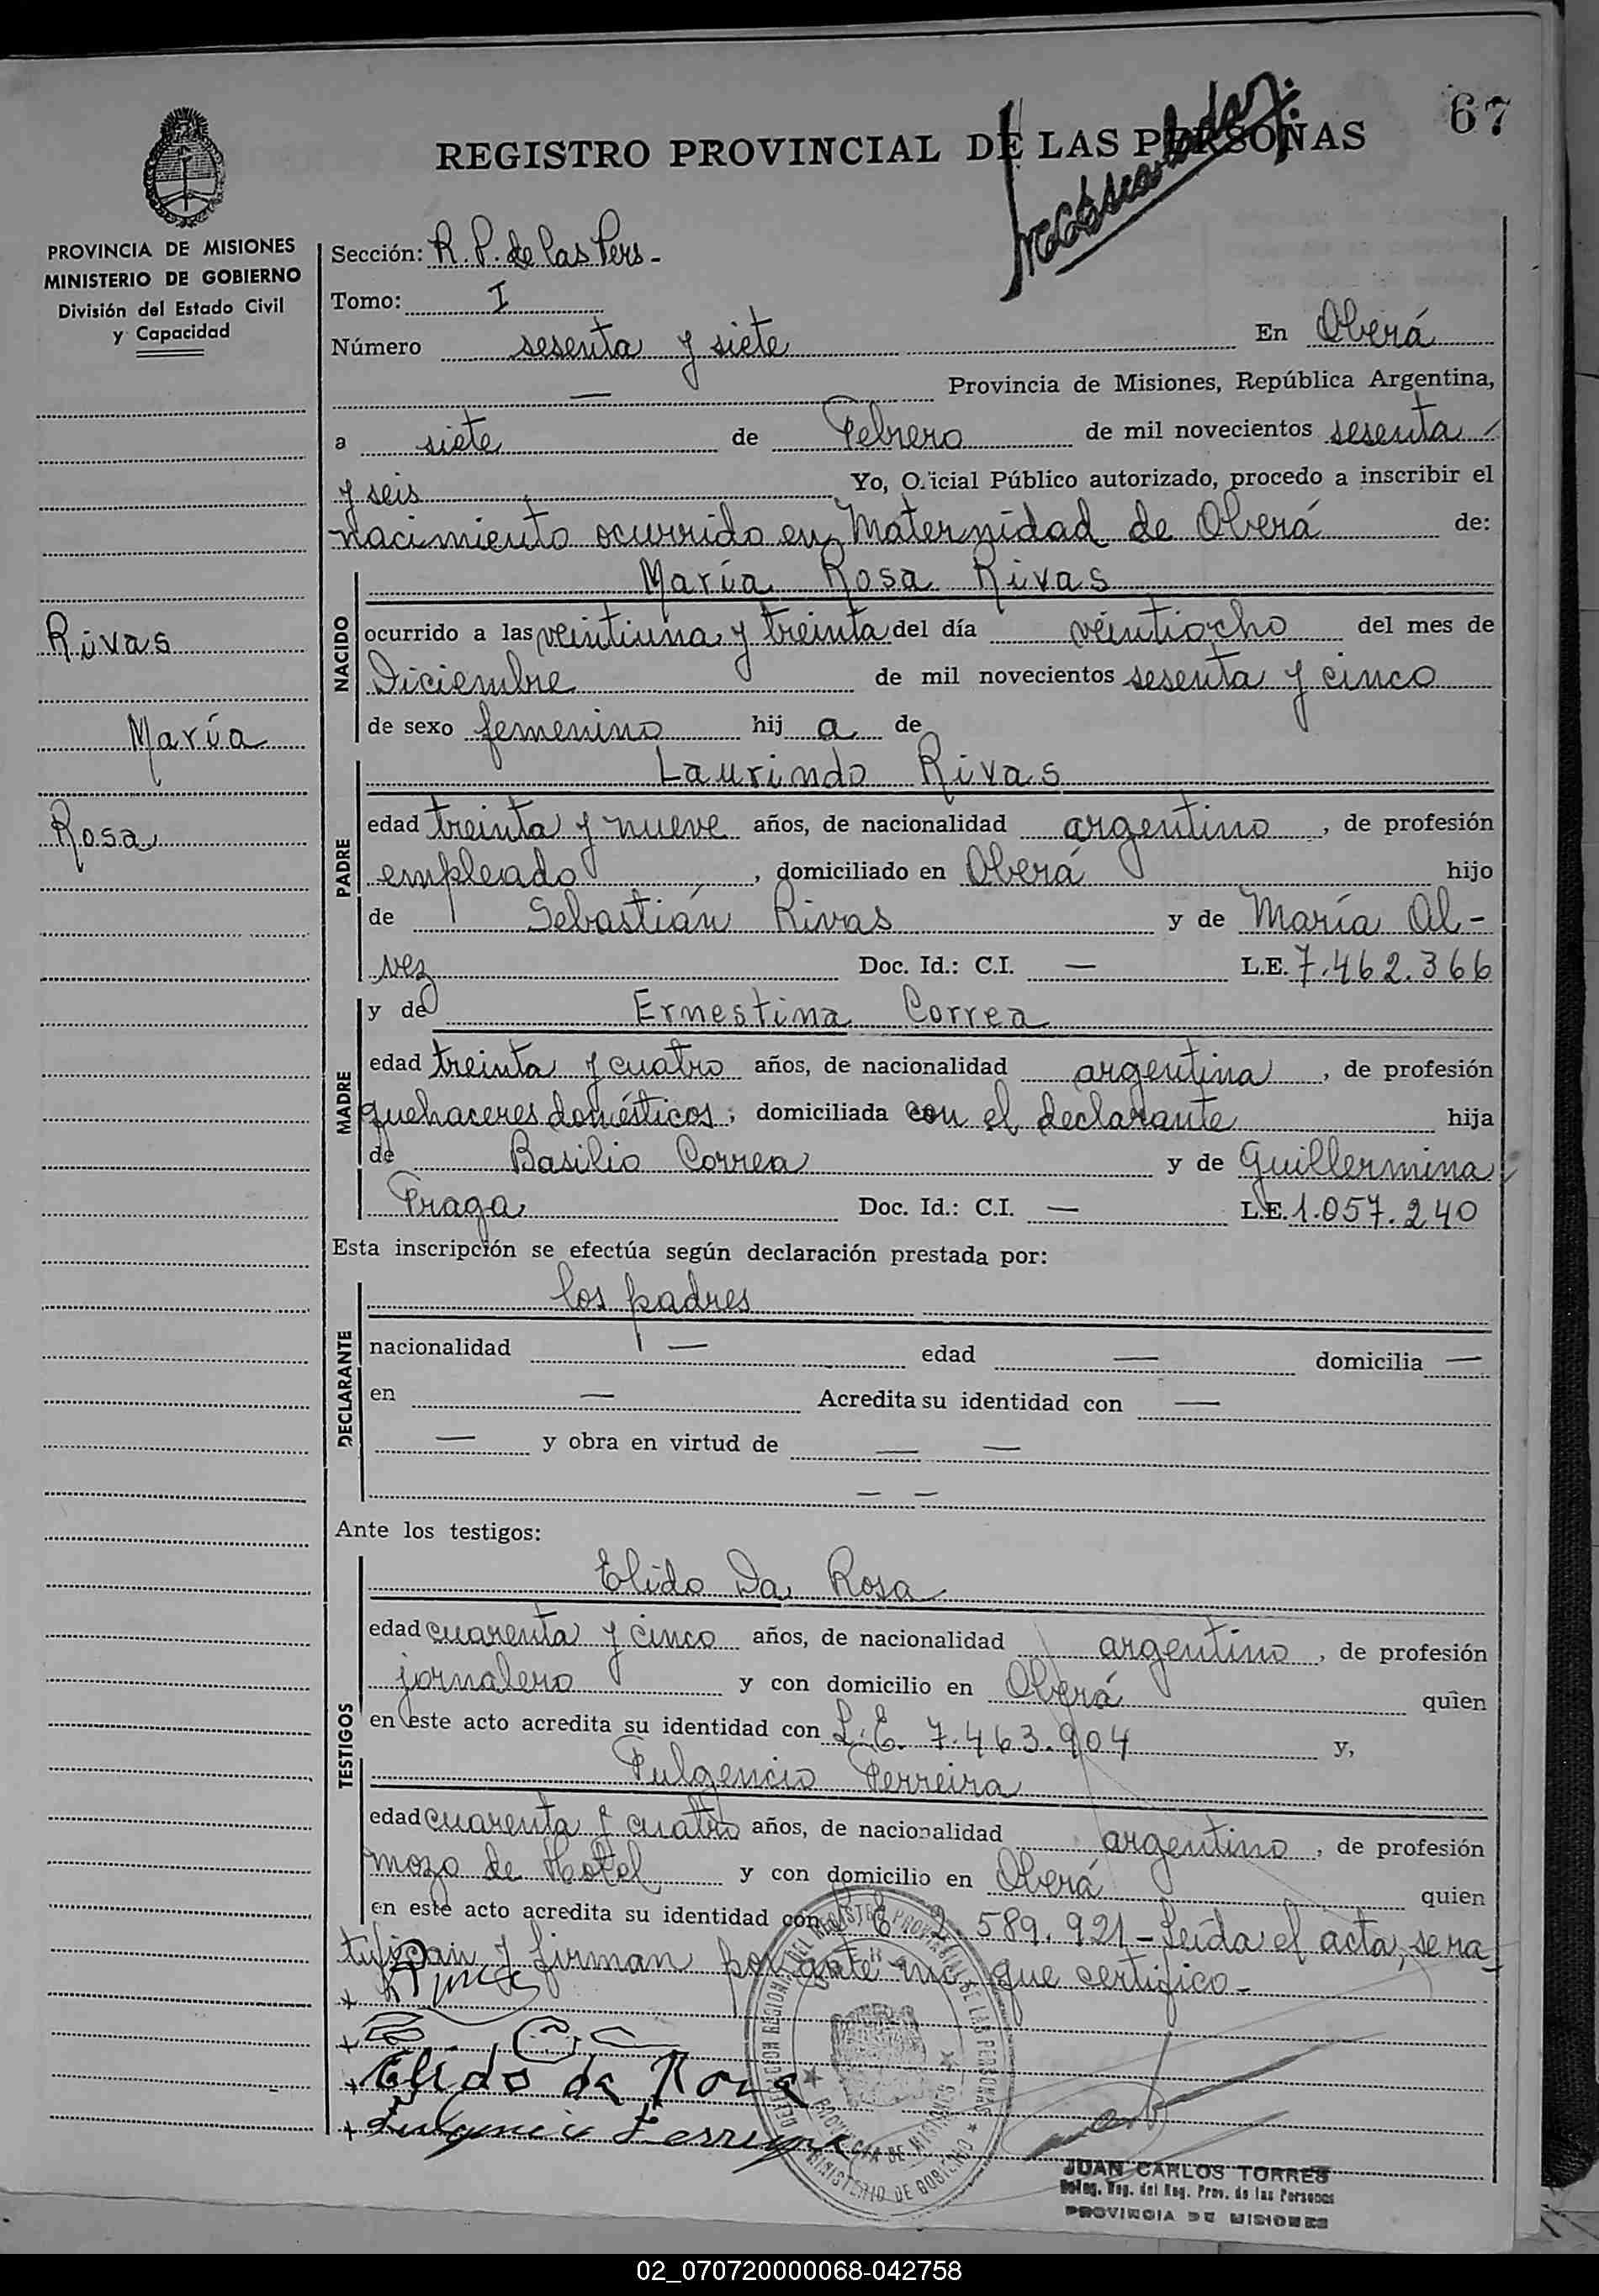 67
REGISTRO PROVINCIAL DE LAS PERSONAS
PROVINCIA DE MISIONES
MINISTERIO DE GOBIERNO
División del Estado Civil
y Capacidad
Rivas
María
Rosa
Sección: R. P. de las Pers-
Tomo: I
Número sesenta y siete En Oberá
— Provincia de Misiones, República Argentina,
a siete de Febrero de mil novecientos sesenta
y seis Yo, Oficial Público autorizado, procedo a inscribir el
nacimiento ocurrido en Maternidad de Oberá de:
NACIDO
María Rosa Rivas
ocurrido a las veintiuna y treinta del día veintiocho del mes de
Diciembre de mil novecientos sesenta y cinco
de sexo femenino hij a de
PADRE
Laurindo Rivas
edad treinta y nueve años, de nacionalidad argentino, de profesión
empleado, domiciliado en Oberá hijo
de Sebastián Rivas y de María Al-
vez Doc. Id.: C.I. — L.E. 7.462.366
MADRE
y de Ernestina Correa
edad treinta y cuatro años, de nacionalidad argentina, de profesión
quehaceres domésticos, domiciliada con el declarante hija
de Basilio Correa y de Guillermina
Fraga Doc. Id.: C.I. — L.E. 1.057.240
Esta inscripción se efectúa según declaración prestada por:
DECLARANTE
los padres
nacionalidad — edad — domicilia —
en — Acredita su identidad con —
— y obra en virtud de — —
— —
Ante los testigos:
TESTIGOS
Elido Da Rosa
edad cuarenta y cinco años, de nacionalidad argentino, de profesión
jornalero y con domicilio en Oberá quien
en este acto acredita su identidad con L.E. 7.463.904 y,
Fulgencio Ferreira
edad cuarenta y cuatro años, de nacionalidad argentino, de profesión
mozo de Hotel y con domicilio en Oberá quien
en este acto acredita su identidad con L.E. 2.589.921 - Leída el acta, se ra-
tifican y firman por ante mi, que certifico -
Elido da Rosa
Fulgencio Ferreyra
PROVINCIA DE MISIONES
MINISTERIO DE GOBIERNO
JUAN CARLOS TORRES
Deleg. Reg. del Reg. Prov. de las Personas
PROVINCIA DE MISIONES
02_070720000068-042758